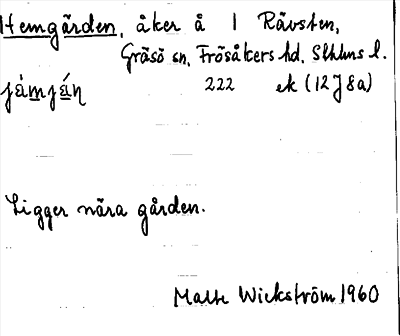 Hemgården, åker å 1 Rävsten,
Gräsö sn, Frösåkers hd, Sthlms l.
222 ek (12J8a)
Ligger nära gården.
Malte Wickström 1960